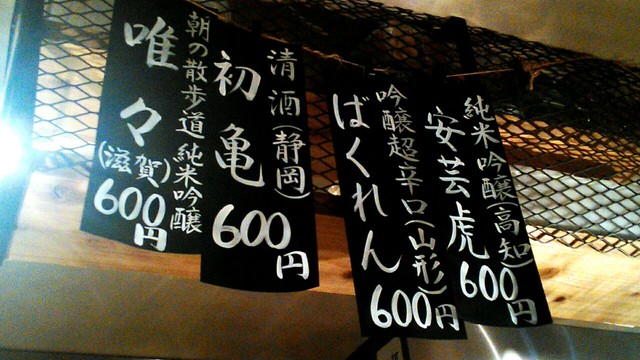 純米吟醸(高知)
安芸虎
600円
吟醸超辛口(山形)
ばくれん
600円
清酒(静岡)
初亀
600円
朝の散歩道 純米吟醸
唯々
(滋賀)
600円